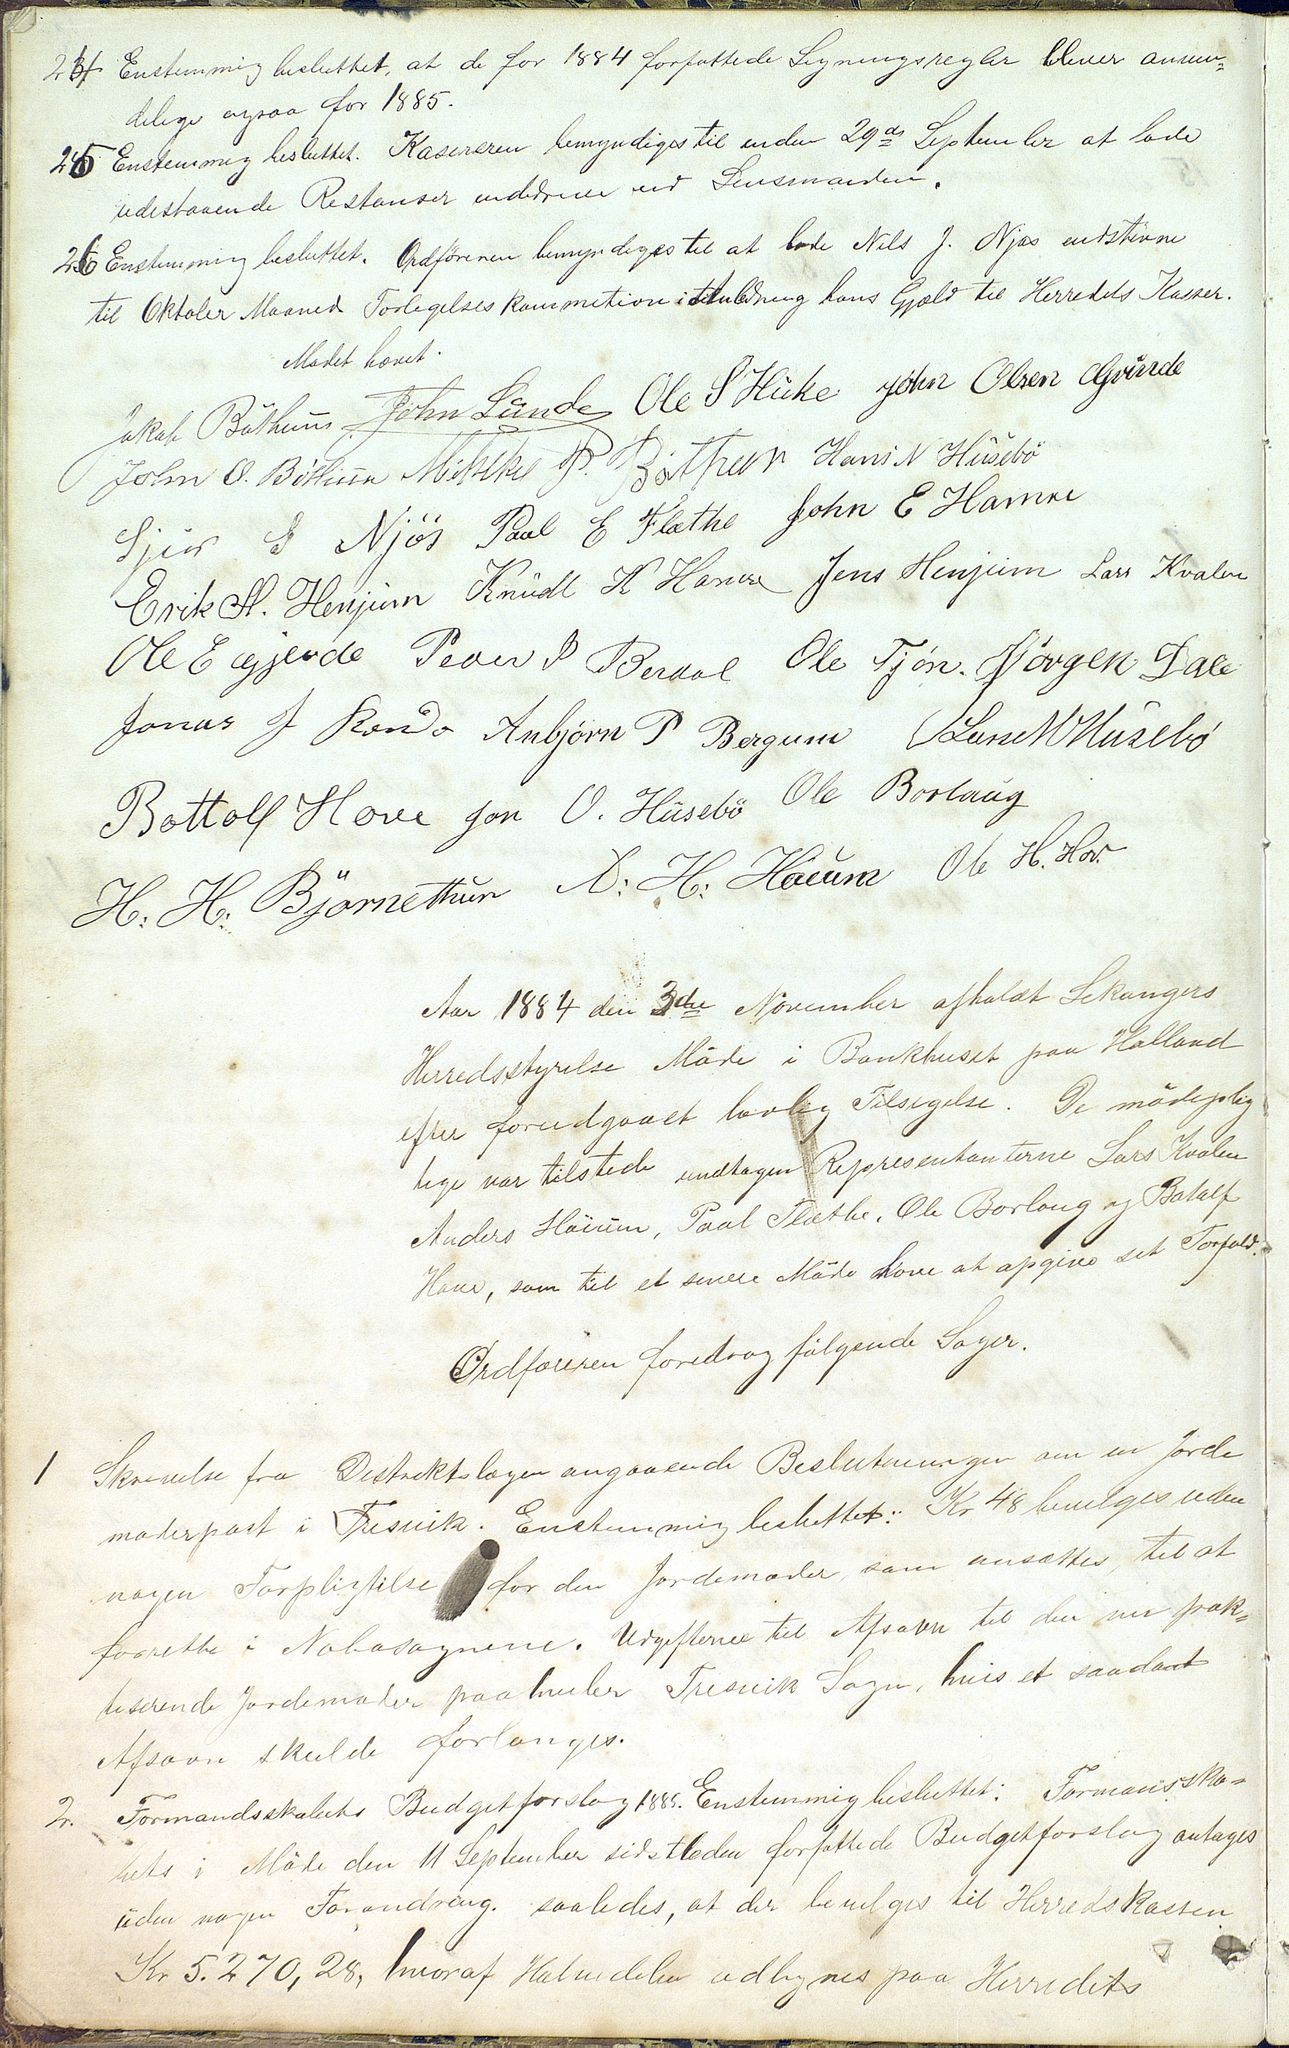 24 Enstemmig besluttet, at de for 1884 forfattede Ligningsregler bliver anven-
delige ogsaa for 1885.
25 Enstemmig besluttet. Kasereren bemyndiges til inden 29de September at lade
udestaaende Restanser inddrive ved Lensmanden.
26 Enstemmig besluttet. Ordføreren bemyndiges til at lade Nils J. Njøs indstevne
til Oktober Maaned Forlegelseskommition i Anledning hans Gjæld til Herredets Kasser.
Mødet hævet.
Jakob Bøthun John Lunde Ole S Huke John Olsen Grinde
John O. Bøthun Mikkel P. Bøthun Hans N Husebö
Sjur S Njøs Paul E Flæthe John E Hamre
Erik A. Henjum Knudt K Hamre Jens Henjum Lars Kvalen
Ole E Eggjende Peder P Berdal Ole Tjøn. Jørgen Dale
Jonas J Anbjørn P Bergum Lars N Husebö
Bottolf Hove Jon O. Husebö Ole Borlaug
H: H: Björnethun A: H: Høium Ole H. Hov.
Aar 1884 den 3die November afholdt Lekangers
Herredsstyrelse Möde i Bankhuset paa Halland
efter foregaaet lovlig Tilsigelse. De mödeplig
tige var tilstede undtagen Representanterne Lars Kvalen
Anders Höium, Paul Flæthe, Ole Borlaug og Botolf
Hove, som til et senere Möde have at opgive sit Forfald.
Ordføreren foredrog følgende Sager.
1 Skrivelse fra Distriktslægen angaaende Beslutninger om en Jorde
moderpost i Fresvik. Enstemmig besluttet: Kr 48 bevilges uden
nogen Forpligtelse for den Jordemoder, som ansættes, til at
forrette i Nabosognene. Udgifterne til Afsavn til den nu prak-
tiserende Jordemoder paahviler Fresvik Sogn, hvis et saadant
Afsavn skulde forlanges.
2. Formandsskabets Budgetforslag 1885. Enstemmig besluttet: Formansska-
bets i Möde den 11 September sidstleden forfattede Budgetforslag antages
uden nogen Forandring. saaledes, at der bevilges til Herredskassen
Kr 5.270,28, hvoraf Halvdelen udlignes paa Herredets